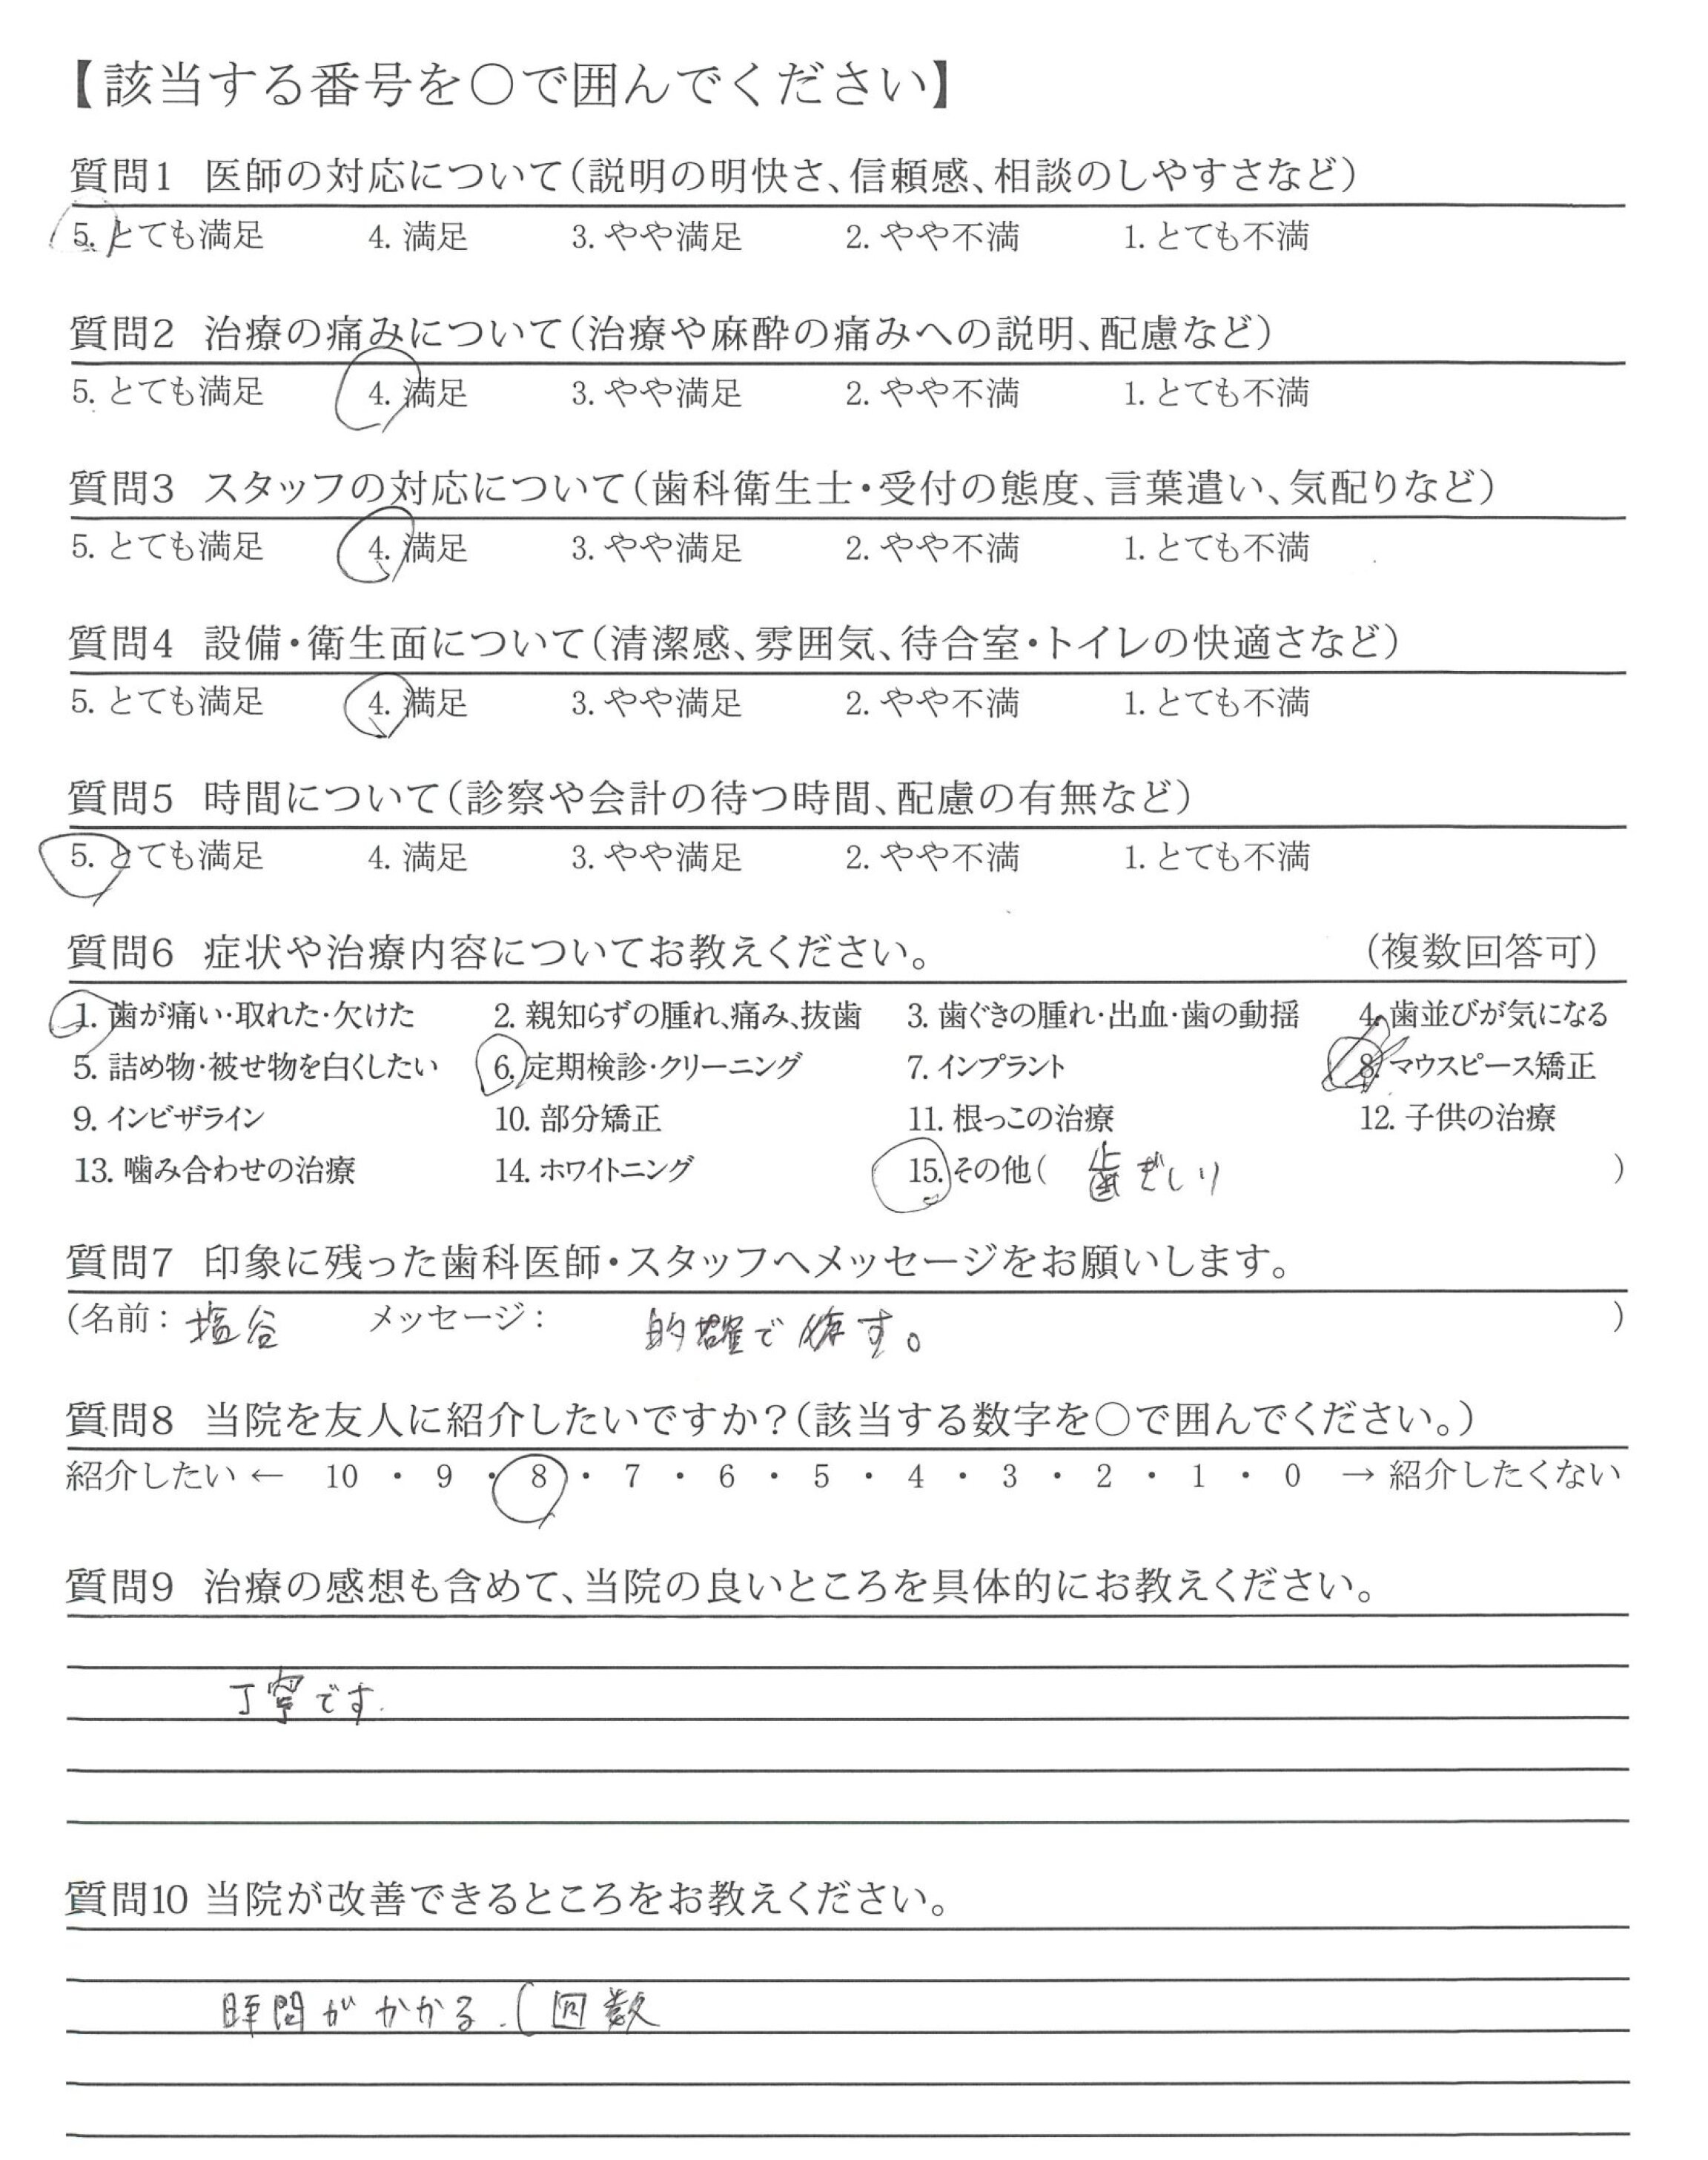 【該当する番号を○で囲んでください】
質問1 医師の対応について(説明の明快さ、信頼感、相談のしやすさなど)
5. とても満足 4. 満足 3. やや満足 2. やや不満 1. とても不満
質問2 治療の痛みについて(治療や麻酔の痛みへの説明、配慮など)
5. とても満足 4. 満足 3. やや満足 2. やや不満 1. とても不満
質問3 スタッフの対応について(歯科衛生士・受付の態度、言葉遣い、気配りなど)
5. とても満足 4. 満足 3. やや満足 2. やや不満 1. とても不満
質問4 設備・衛生面について(清潔感、雰囲気、待合室・トイレの快適さなど)
5. とても満足 4. 満足 3. やや満足 2. やや不満 1. とても不満
質問5 時間について(診察や会計の待つ時間、配慮の有無など)
5. とても満足 4. 満足 3. やや満足 2. やや不満 1. とても不満
質問6 症状や治療内容についてお教えください。 (複数回答可)
1. 歯が痛い・取れた・欠けた 2. 親知らずの腫れ、痛み、抜歯 3. 歯ぐきの腫れ・出血・歯の動揺 4. 歯並びが気になる
5. 詰め物・被せ物を白くしたい 6. 定期検診・クリーニング 7. インプラント 8. マウスピース矯正
9. インビザライン 10. 部分矯正 11. 根っこの治療 12. 子供の治療
13. 噛み合わせの治療 14. ホワイトニング 15. その他( 歯ぎしり )
質問7 印象に残った歯科医師・スタッフへメッセージをお願いします。
(名前: 塩谷 メッセージ: 的確で す。 )
質問8 当院を友人に紹介したいですか?(該当する数字を○で囲んでください。)
紹介したい ← 10 ・ 9 ・ 8 ・ 7 ・ 6 ・ 5 ・ 4 ・ 3 ・ 2 ・ 1 ・ 0 → 紹介したくない
質問9 治療の感想も含めて、当院の良いところを具体的にお教えください。
丁寧です.
質問10 当院が改善できるところをお教えください。
時間がかかる.(回数